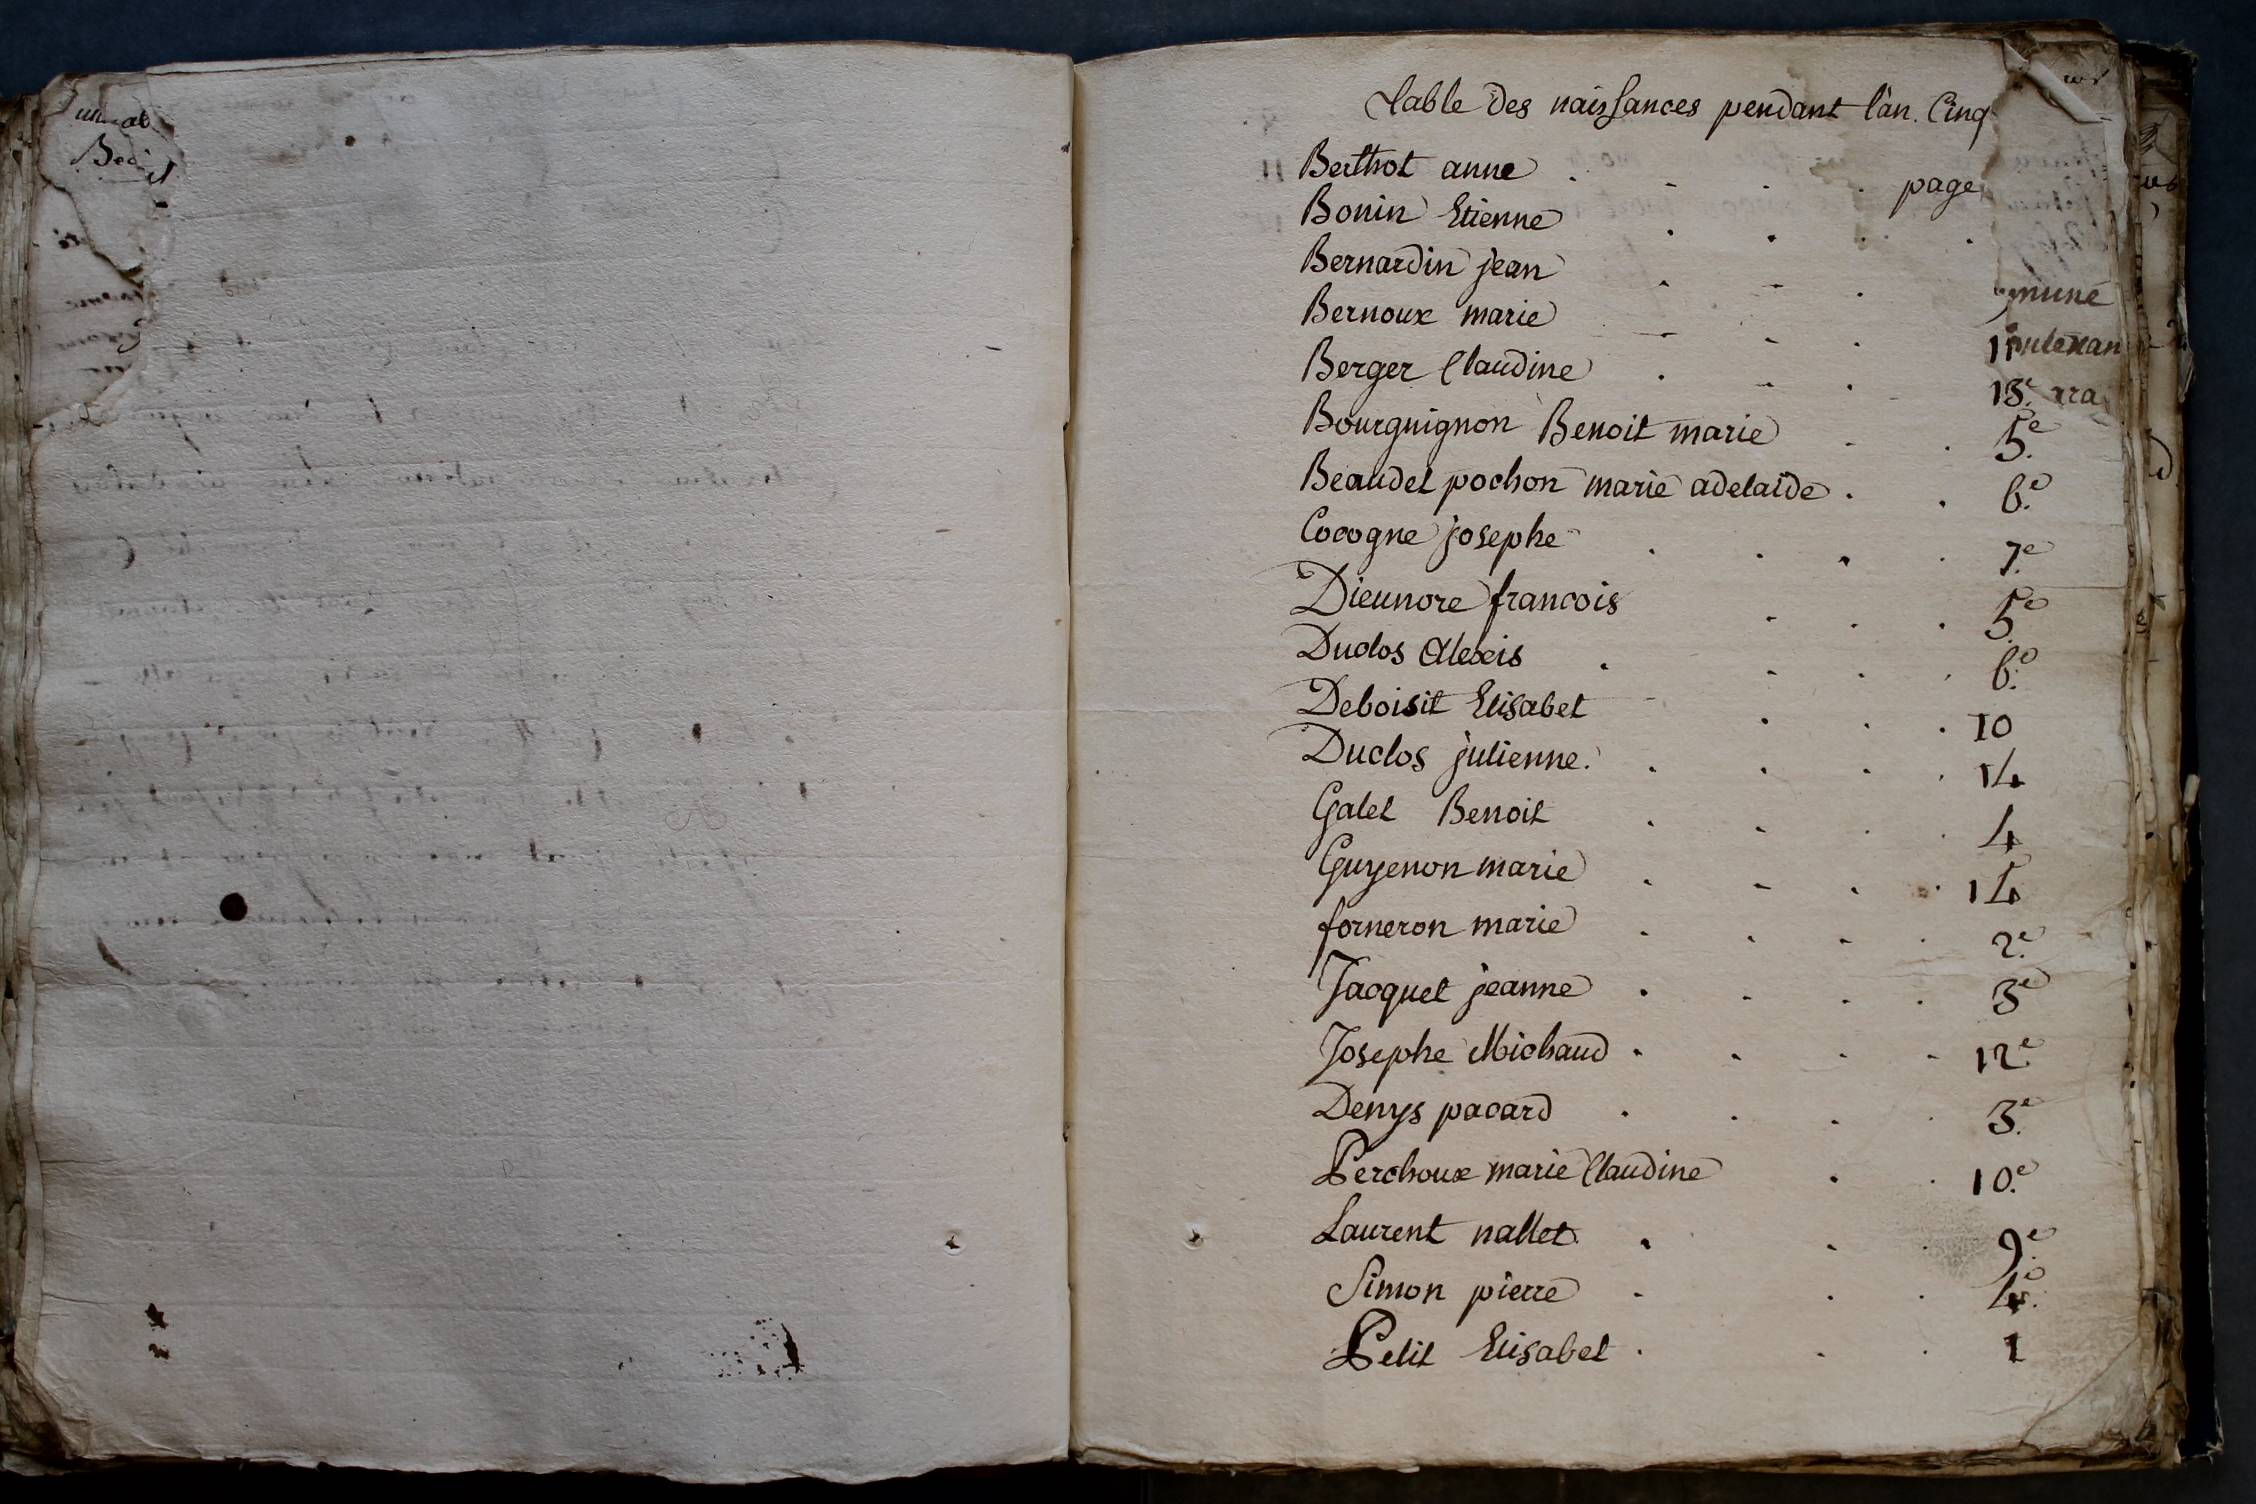 Bec
Table des naissances pendant l'an. Cinq
Berthot anne . . . . page
Bonin Etienne . . . .
Bernardin jean . . .
Bernoux marie . . . 11
Berger Claudine . . . 13.e
Bourguignon Benoit marie . . 5.e
Beaudet pochon marie adelaide . . 6.e
Cocogne josephe . . . . 7.e
Dieunore francois . . . 5.e
Duclos Alexis . . . . 6.e
Deboisit Elisabet . . . 10
Duclos julienne. . . . . 14
Galet Benoit . . . . 4
Guyenon marie . . . . 14
forneron marie . . . . 2.e
Jacquet jeanne . . . . 3e
Josephe Michaud . . . . 12.e
Denys pacard . . . . 3.e
Perchoux marie Claudine . . 10.e
Laurent nallet . . . 9.e
Simon pierre . . . 4.e
Petit Elisabet . . . 1